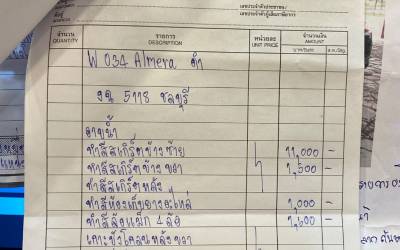 เลขประจำตัวประชาชน/
เลขประจำตัวผู้เสียภาษีอากร
จำนวน รายการ หน่วยละ จำนวนเงิน
QUANTITY DESCRIPTION UNIT PRICE AMOUNT
W 034 Almera ดำ
5118 ชลบุรี
อาบน้ำ
ทำสีสเกิร์ตข้างซ้าย 11,000 -
ทำสีสเกิร์ตข้างขวา 1,500 -
ทำสีสเกิร์ตหลัง
ทำสีห้องเก็บยางอะไหล่ 1,000 -
ทำสีล้อแม็ก 4 ล้อ -